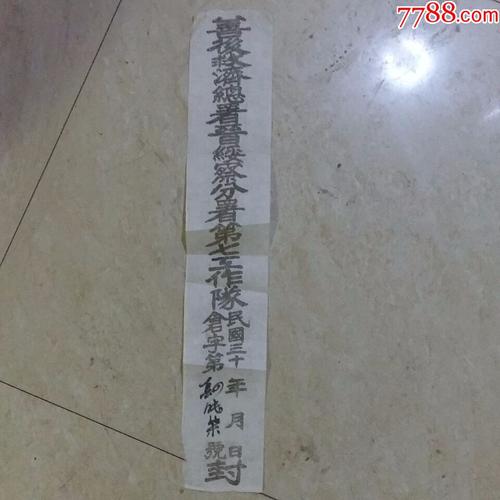 7788.com
善後救濟總署晉綏察分署第七工作隊
民國三十年月日
倉字第號
封